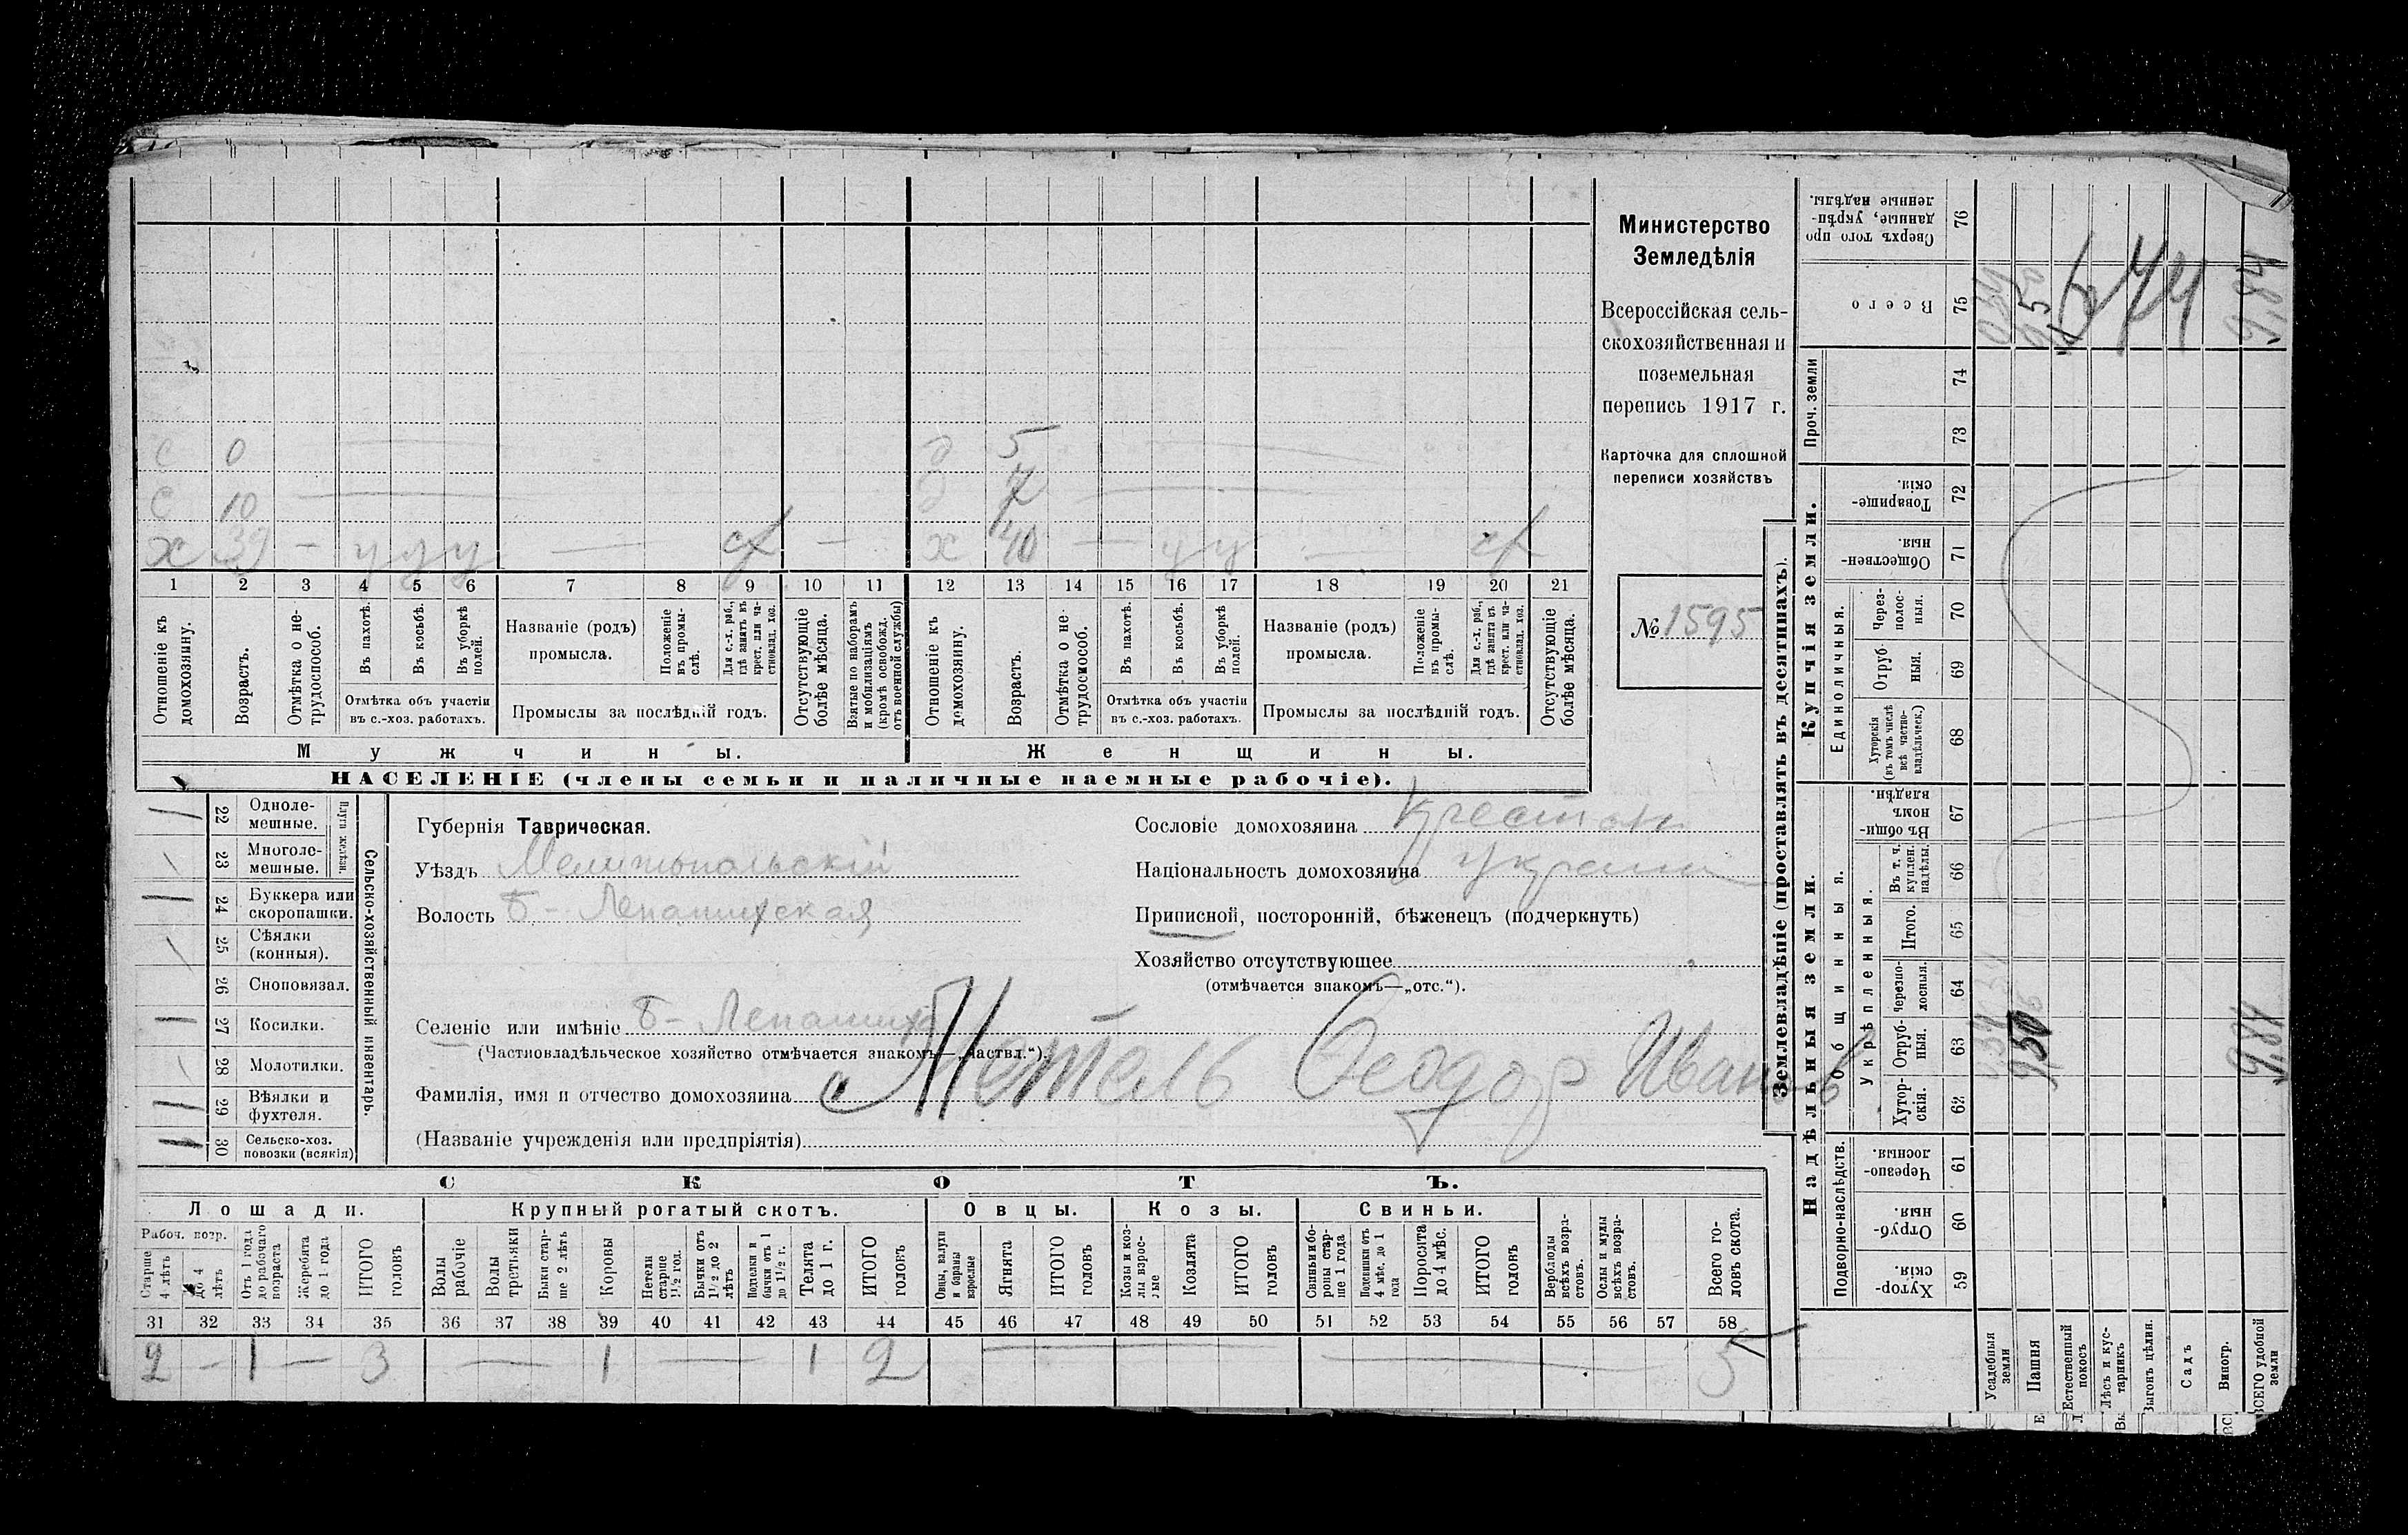 с 0 — д 5
с 10 — д 7
х 39 — у у у — — х 40 — у у —
1 2 3 4 5 6 7 8 9 10 11 12 13 14 15 16 17 18 19 20 21
Отношеніе къ домохозяину.
Возрастъ.
Отмѣтка о нетрудоспособ.
Въ пахотѣ.
Въ косьбѣ.
Въ уборкѣ полей.
Отмѣтка объ участіи въ с.-хоз. работахъ.
Названіе (родъ) промысла.
Положеніе въ промыслѣ.
Для с.-х. раб., гдѣ занятъ въ крест. или частновлад. хоз.
Промыслы за послѣдній годъ.
Отсутствующіе болѣе мѣсяца.
Взятые по наборамъ и мобилизаціямъ (кромѣ освобожд. отъ военной службы)
Отношеніе къ домохозяину.
Возрастъ.
Отмѣтка о нетрудоспособ.
Въ пахотѣ.
Въ косьбѣ.
Въ уборкѣ полей.
Отмѣтка объ участіи въ с.-хоз. работахъ.
Названіе (родъ) промысла.
Положеніе въ промыслѣ.
Для с.-х. раб., гдѣ занята въ крест. или частновлад. хоз.
Промыслы за послѣдній годъ.
Отсутствующіе болѣе мѣсяца.
Мужчины.
Женщины.
НАСЕЛЕНІЕ (члены семьи и наличные наемные рабочіе).
Министерство
Земледѣлія
Всероссійская сель-
скохозяйственная и
поземельная
перепись 1917 г.
Карточка для сплошной
переписи хозяйствъ
№ 1595
Сельско-хозяйственный инвентарь.
Плуги желѣзн.
22 Однолемешные.
23 Многолемешные.
24 Буккера или скоропашки.
25 Сѣялки (конныя).
26 Сноповязал.
27 Косилки.
28 Молотилки.
29 Вѣялки и фухтеля.
30 Сельско-хоз. повозки (всякія)
Губернія Таврическая.
Уѣздъ Мелитопольскій
Волость Б-Лепатихская
Селеніе или имѣніе Б-Лепатиха
(Частновладѣльческое хозяйство отмѣчается знакомъ—„частвл.“).
Фамилія, имя и отчество домохозяина Метель Ѳеодор Иванов
(Названіе учрежденія или предпріятія)
Сословіе домохозяина крестян
Національность домохозяина украин
Приписной, посторонній, бѣженецъ (подчеркнуть)
Хозяйство отсутствующее
(отмѣчается знакомъ—„отс.“).
СКОТЪ.
Лошади.
Крупный рогатый скотъ.
Овцы.
Козы.
Свиньи.
Рабоч. возр.
Старше 4 лѣтъ
до 4 лѣтъ
Отъ 1 года до рабочаго возраста
Жеребята до 1 года
ИТОГО головъ
Волы рабочіе
Волы третьяки
Быки старше 2 лѣтъ
Коровы
Нетели старше 1½ год.
Бычки отъ 1½ до 2 лѣтъ
Подтелки и бычки отъ 1 до 1½ г.
Телята до 1 г.
ИТОГО головъ
Овцы, валухи и бараны взрослые
Ягнята
ИТОГО головъ
Козы и козлы взрослые
Козлята
ИТОГО головъ
Свиньи и боровы старше 1 года
Подсвинки отъ 4 мѣс. до 1 года
Поросята до 4 мѣс.
ИТОГО головъ
Верблюды всѣхъ возрастовъ.
Ослы и мулы всѣхъ возрастовъ.
Всего головъ скота.
31 32 33 34 35 36 37 38 39 40 41 42 43 44 45 46 47 48 49 50 51 52 53 54 55 56 57 58
2 — 1 — 3 — 1 — 1 2 — — 5
Землевладѣніе (проставлять въ десятинахъ).
Купчія земли.
Надѣльныя земли.
Проч. земли
Единоличныя.
Общинныя.
Укрѣпленныя.
Подворно-наслѣдств.
Сверхъ того проданные, укрѣпленные надѣлы. 76
Всего 75
74
73
Товарищескія. 72
Общественныя. 71
Черезполосныя. 70
Отрубныя. 69
Хуторскія (въ томъ числѣ всѣ частновладѣльческ.) 68
Въ общинномъ владѣн. 67
Въ т. ч. куплен. надѣлы. 66
Итого. 65
Черезполосныя. 64
Отрубныя. 63
Хуторскія. 62
Черезполосныя. 61
Отрубныя. 60
Хуторскія. 59
Усадебныя земли
Пашня
Естественный покосъ
Лѣсъ и кустарникъ
Выгонъ цѣлин.
Садъ
Виногр.
ВСЕГО удобной земли
9,50
9,84
9,84